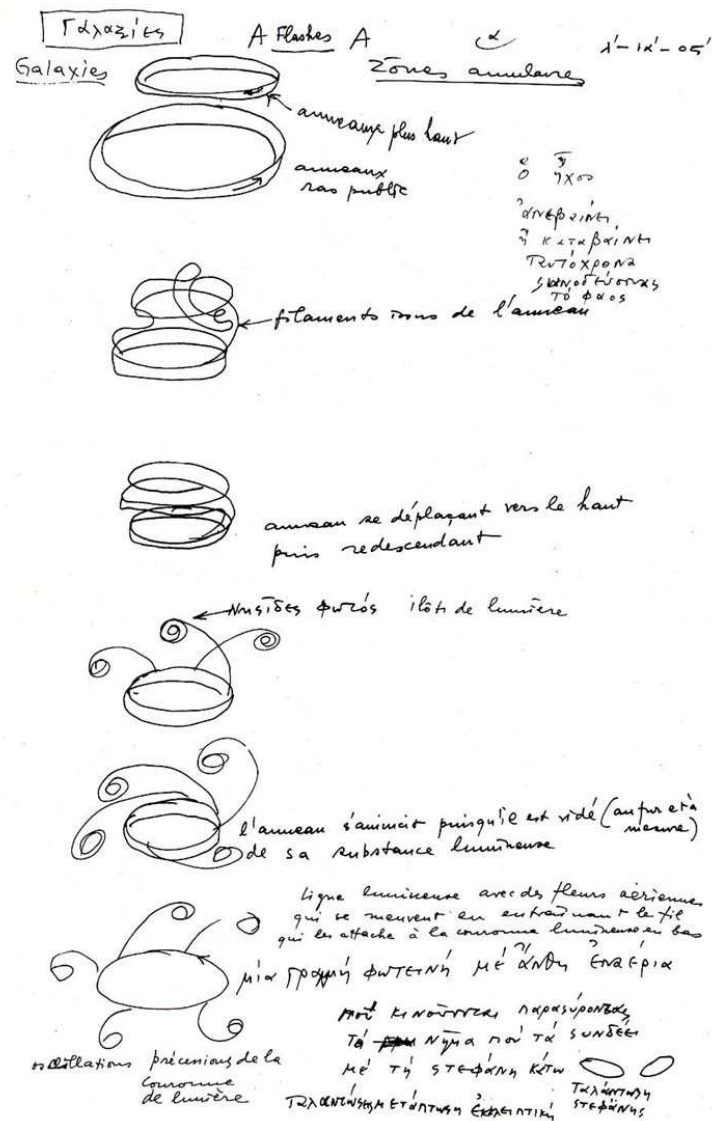 Γαλαξίες
A Flashes A
α
Galaxies
Zônes annulaires
anneaux plus haut
anneaux
ras public
ὁ ἦχος
ἀνεβαίνει
ἢ καταβαίνει
ταυτόχρονα
τὸ φάος
filaments issus de l'anneau
anneau se déplaçant vers le haut
puis redescendant
Νησίδες φωτός ilôts de lumière
l'anneau s'amincit puisqu'il est vidé (au fur et à
mesure)
de sa substance lumineuse
Ligne lumineuse avec des fleurs aériennes
qui se meuvent en entraînant le fil
qui les attache à la couronne lumineuse en bas
μία γραμμή φωτεινή μέ ἄνθη ἐναέρια
πού κινοῦνται παρασύροντας
τά νῆμα πού τά συνδέει
μέ τή στεφάνη κάτω
oscillations précessions de la
couronne
de lumière
Ταλάντωση
στεφάνης
ταλαντώσεις μετάπτωση ἐκλειπτική